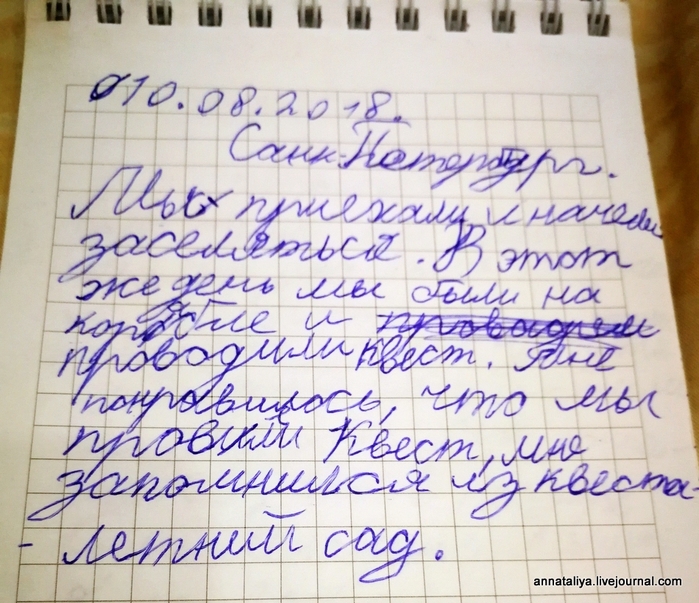 010.08.2018.
Санк-Петербург.
Мы приехали и начали
заселяться. В этот
же день мы были на
корабле и проводили
проводили квест. Мне
понравилось, что мы
провили квест, мне
запомнился из квеста-
- летний сад.
annataliya.livejournal.com